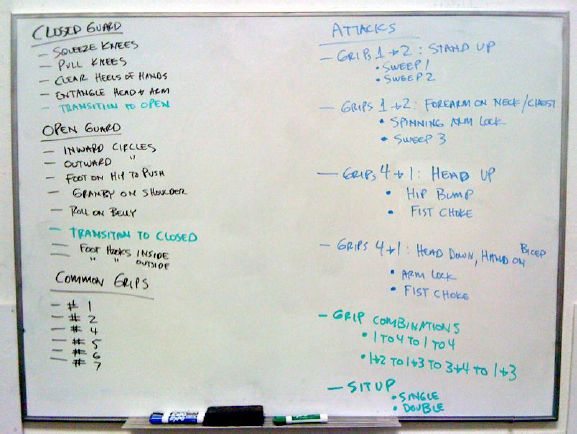 CLOSED GUARD
- SQUEEZE KNEES
- PULL KNEES
- CLEAR HEELS OF HANDS
- ENTANGLE HEAD & ARM
- TRANSITION TO OPEN
OPEN GUARD
- INWARD CIRCLES
- OUTWARD "
- FOOT ON HIP TO PUSH
- GRANBY ON SHOULDER
- ROLL ON BELLY
- TRANSITION TO CLOSED
- FOOT HOOKS INSIDE
- " " OUTSIDE
COMMON GRIPS
- # 1
- # 2
- # 4
- # 5
- # 6
- # 7
ATTACKS
- GRIPS 1+2: STAND UP
• SWEEP 1
• SWEEP 2
- GRIPS 1+2: FOREARM ON NECK/CHEST
• SPINNING ARM LOCK
• SWEEP 3
- GRIPS 4+1: HEAD UP
• HIP BUMP
• FIST CHOKE
- GRIPS 4+1: HEAD DOWN, HAND ON BICEP
• ARM LOCK
• FIST CHOKE
- GRIP COMBINATIONS
• 1 TO 4 TO 1 TO 4
• 1+2 TO 1+3 TO 3+4 TO 1+3
- SIT UP
• SINGLE
• DOUBLE
EXPO